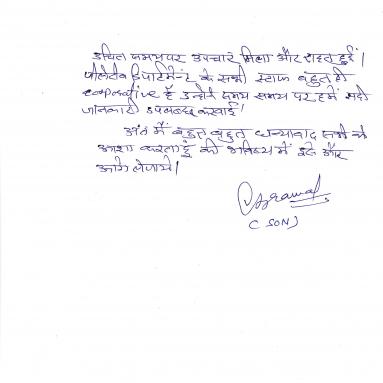 उचित समय पर उपचार मिला और राहत हुई।
डिपार्टमेन्ट के सभी स्टाफ बहुत ही
cooperative है उन्होने समय समय पर हमें सही
जानकारी उपलब्ध करवाई।
अंत में बहुत बहुत धन्यवाद सभी को
आशा करता हूं की भविष्य में इसे और
आगे लेजाये।
Agrawal
(SON)